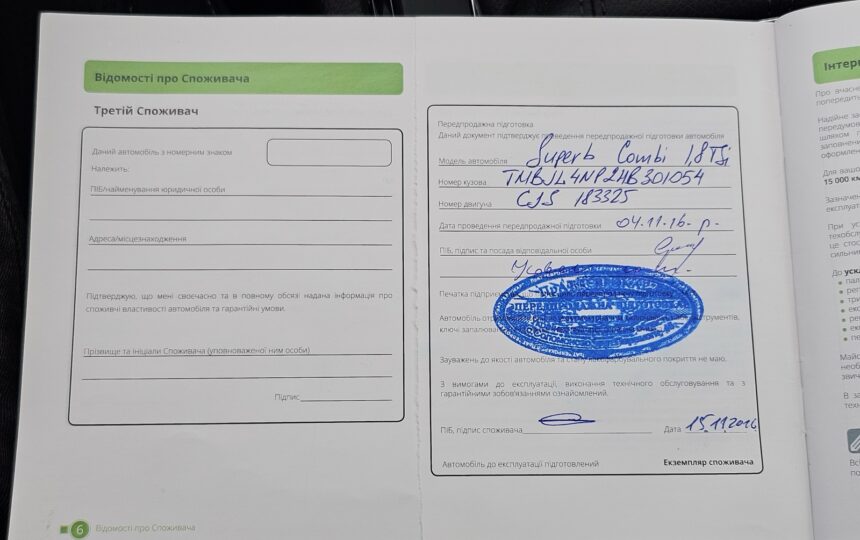 Відомості про Споживача
Третій Споживач
Даний автомобіль з номерним знаком
Належить:
ПІБ/найменування юридичної особи
Адреса/місцезнаходження
Підтверджую, що мені своєчасно та в повному обсязі надана інформація про
споживчі властивості автомобіля та гарантійні умови.
Прізвище та ініціали Споживача (уповноваженої ним особи)
Підпис
6 Відомості про Споживача
Передпродажна підготовка
Даний документ підтверджує проведення передпродажної підготовки автомобіля
Модель автомобіля Superb Combi 1,8 TSi
Номер кузова TMBJL4NP2HB301054
Номер двигуна CJS 183325
Дата проведення передпродажної підготовки 04.11.16 р.
ПІБ, підпис та посада відповідальної особи
Печатка
ПЕРЕДПРОДАЖНА ПІДГОТОВКА
Автомобіль
ключі
Зауважень до якості автомобіля та стану лакофарбувального покриття не маю.
З вимогами до експлуатації, виконання технічного обслуговування та з
гарантійними зобов'язаннями ознайомлений.
ПІБ, підпис споживача Дата 15.11.2016
Автомобіль до експлуатації підготовлений Екземпляр споживача
Про вчасне
попередить
Надійне
передумов
шляхом
заповнени
оформлен
15 000 км
експлуат
При
техобслу
це
До